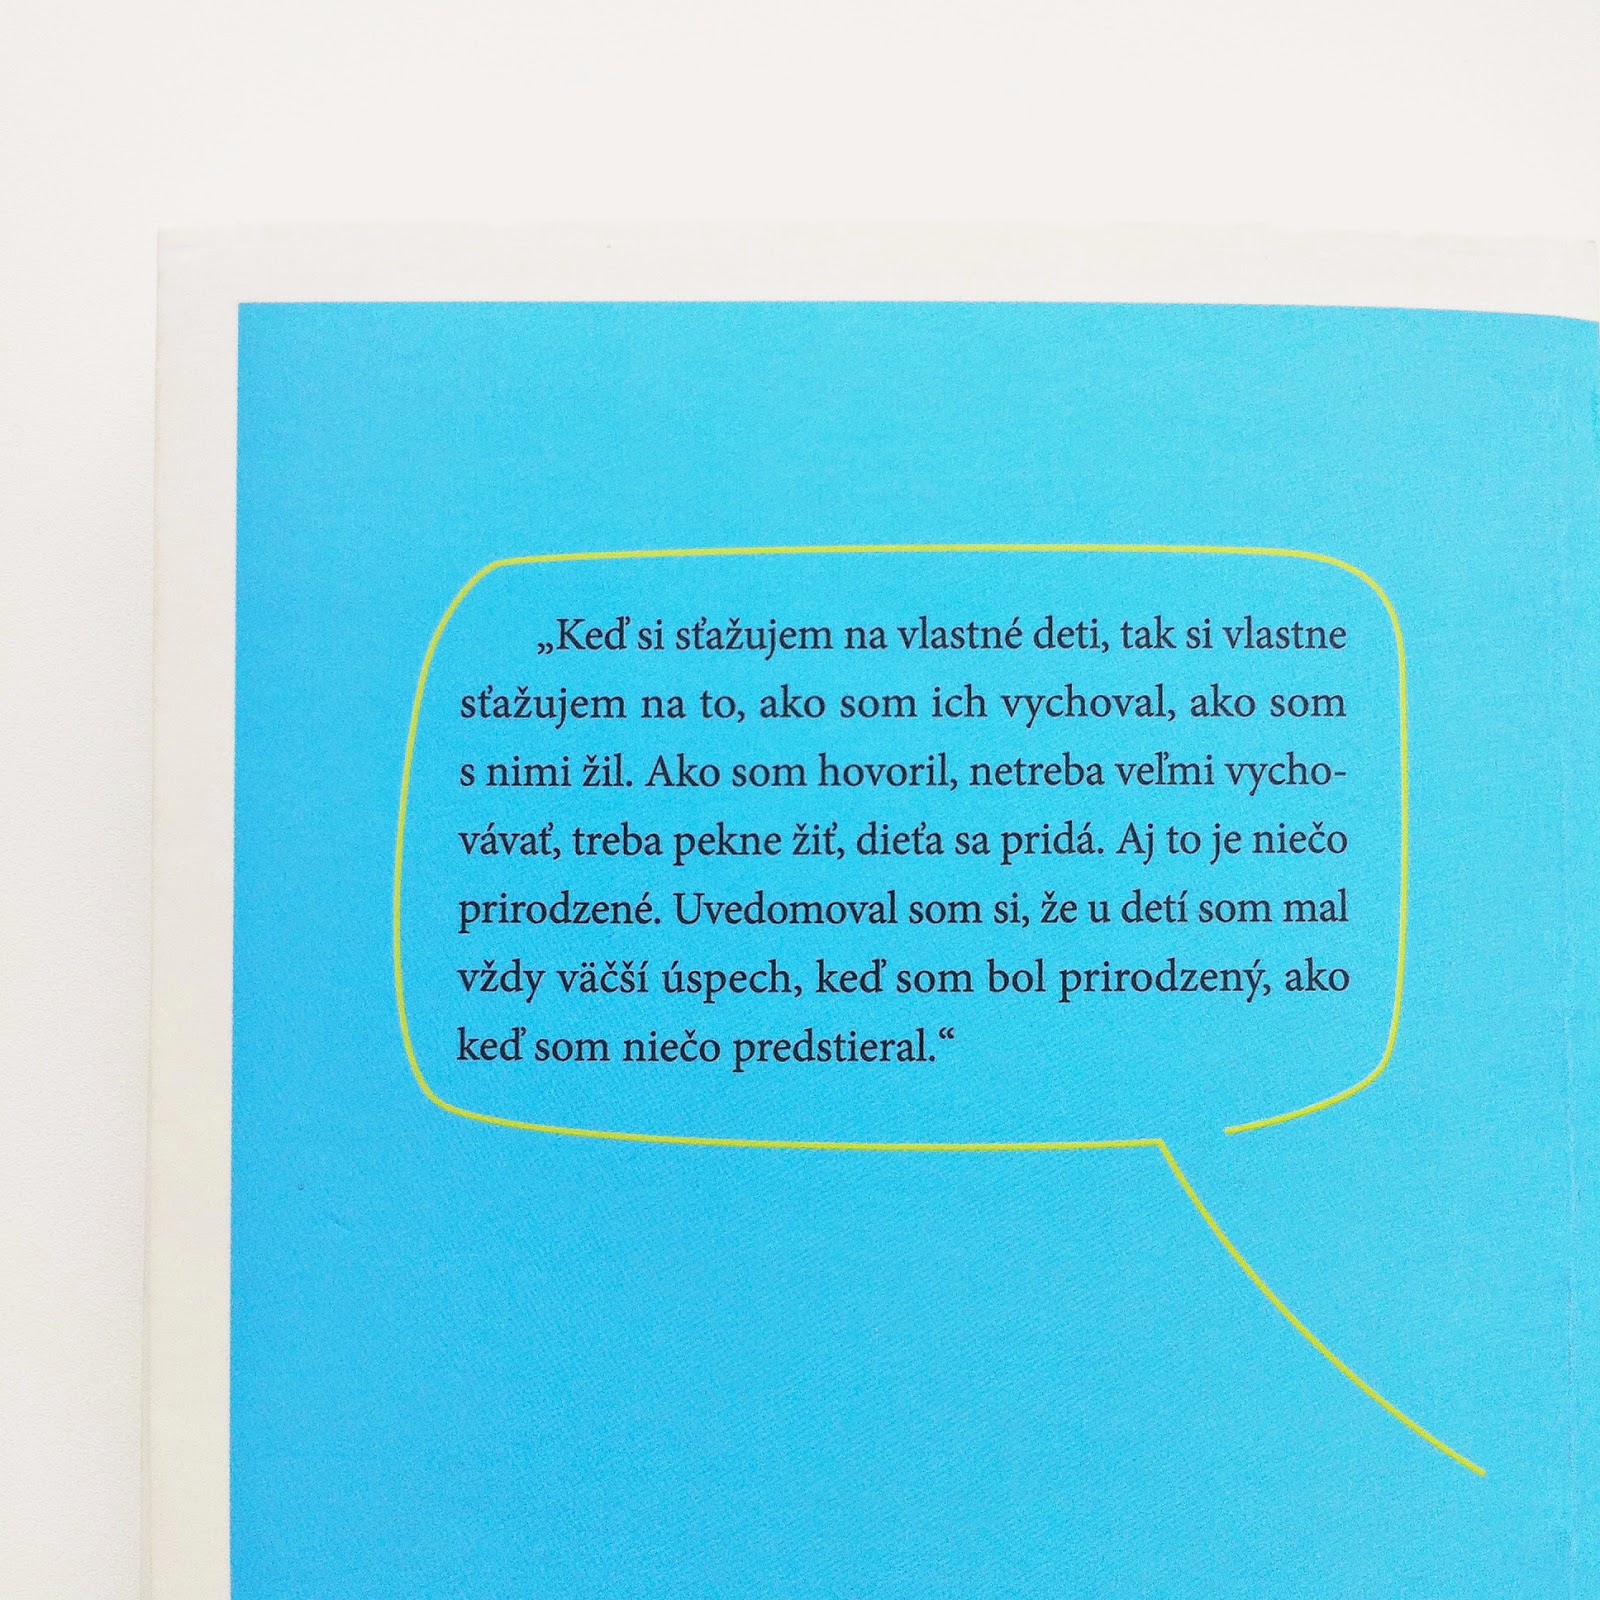 „Keď si sťažujem na vlastné deti, tak si vlastne
sťažujem na to, ako som ich vychoval, ako som
s nimi žil. Ako som hovoril, netreba veľmi vycho-
vávať, treba pekne žiť, dieťa sa pridá. Aj to je niečo
prirodzené. Uvedomoval som si, že u detí som mal
vždy väčší úspech, keď som bol prirodzený, ako
keď som niečo predstieral.“